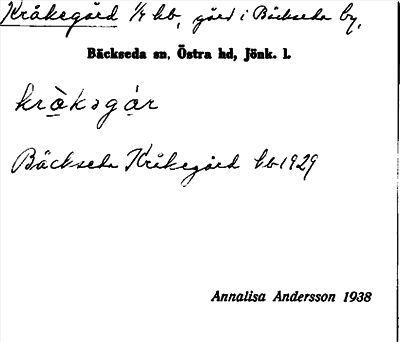 Kråkegård 1/4 kb, gård i Bäckseda by,
Bäckseda sn, Östra hd, Jönk. l.
kràkəgár
Bäckseda Kråkegård kb 1929
Annalisa Andersson 1938